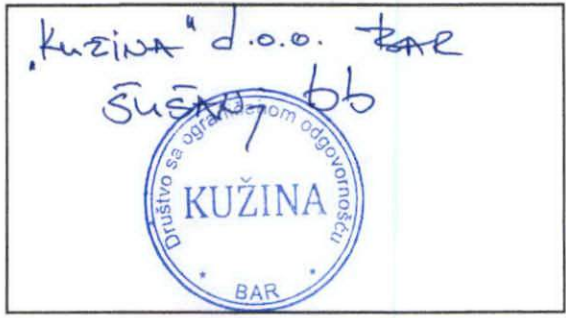 „Kužina" d.o.o. BAR
ŠUŠANJ bb
Društvo sa ograničenom odgovornošću
KUŽINA
* BAR *